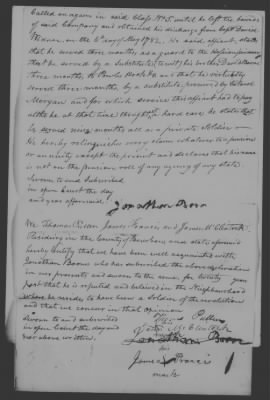 Called on again in said Class No. 5 until he left the bounds
of said Company and obtained his discharge from Capt David
on the 6 day of May 1782. This said affiant states
that he served three months as a guard to the Hessian prisoners
that he served by a Substitute (to wit) his brother David Boore
three months
served three months by a Substitute procured by Colonel
Morgan and for which service this affiant had to pay
altho he at that time thought it hard case. he states that
he served nine months all as a private Soldier
He hereby relinquishes every claim whatever to a pension
or an annuity except the present and declares that his name
is not on the pension roll of any agency of any state
Sworn to and Subscribed
in open Court the day
and year aforesaid
Jonathan Boore
We Thomas Pullen James France and James McClintock
Residing in the County of and state aforesaid
hereby Certify that we have been well acquainted with
Jonathan Boore who has subscribed the above declaration
in our presents and sworn to the same for twenty years
past that he is reputed and believed in the Neighbourhood
where he resides to have been a Soldier of the revolution
and that we concur in that opinion
Sworn to and subscribed
in open Court the day and
year above written
Pullen
McClintock
Jonathan Boore
his
James France
mark